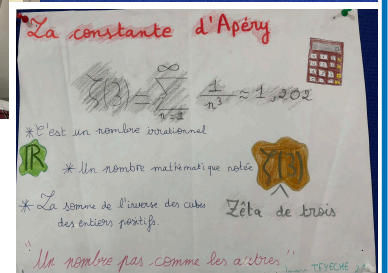 La constante d'Apéry
ζ(3) = ∞ Σ n=1 1/n³ ≈ 1,202
* C'est un nombre irrationnel
ℝ
* Un nombre mathématique notée
ζ(3)
* La somme de l'inverse des cubes
des entiers positifs.
Zêta de trois
"Un nombre pas comme les autres"
TEYECHE